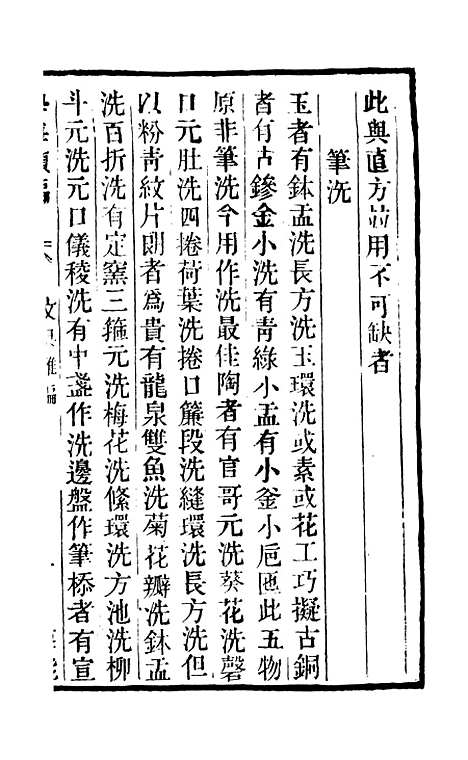 此與直方並用不可缺者
筆洗
玉者有鉢盂洗長方洗玉環洗或素或花工巧擬古銅
者有古鏒金小洗有青綠小盂有小釜小巵匜此五物
原非筆洗今用作洗最佳陶者有官哥元洗葵花洗磬
口元肚洗四捲荷葉洗捲口簾段洗縫環洗長方洗但
以粉青紋片朗者為貴有龍泉雙魚洗菊花瓣洗鉢盂
洗百折洗有定窯三箍元洗梅花洗絛環洗方池洗柳
斗元洗元口儀稜洗有中盞作洗邊盤作筆㮇者有宣
編